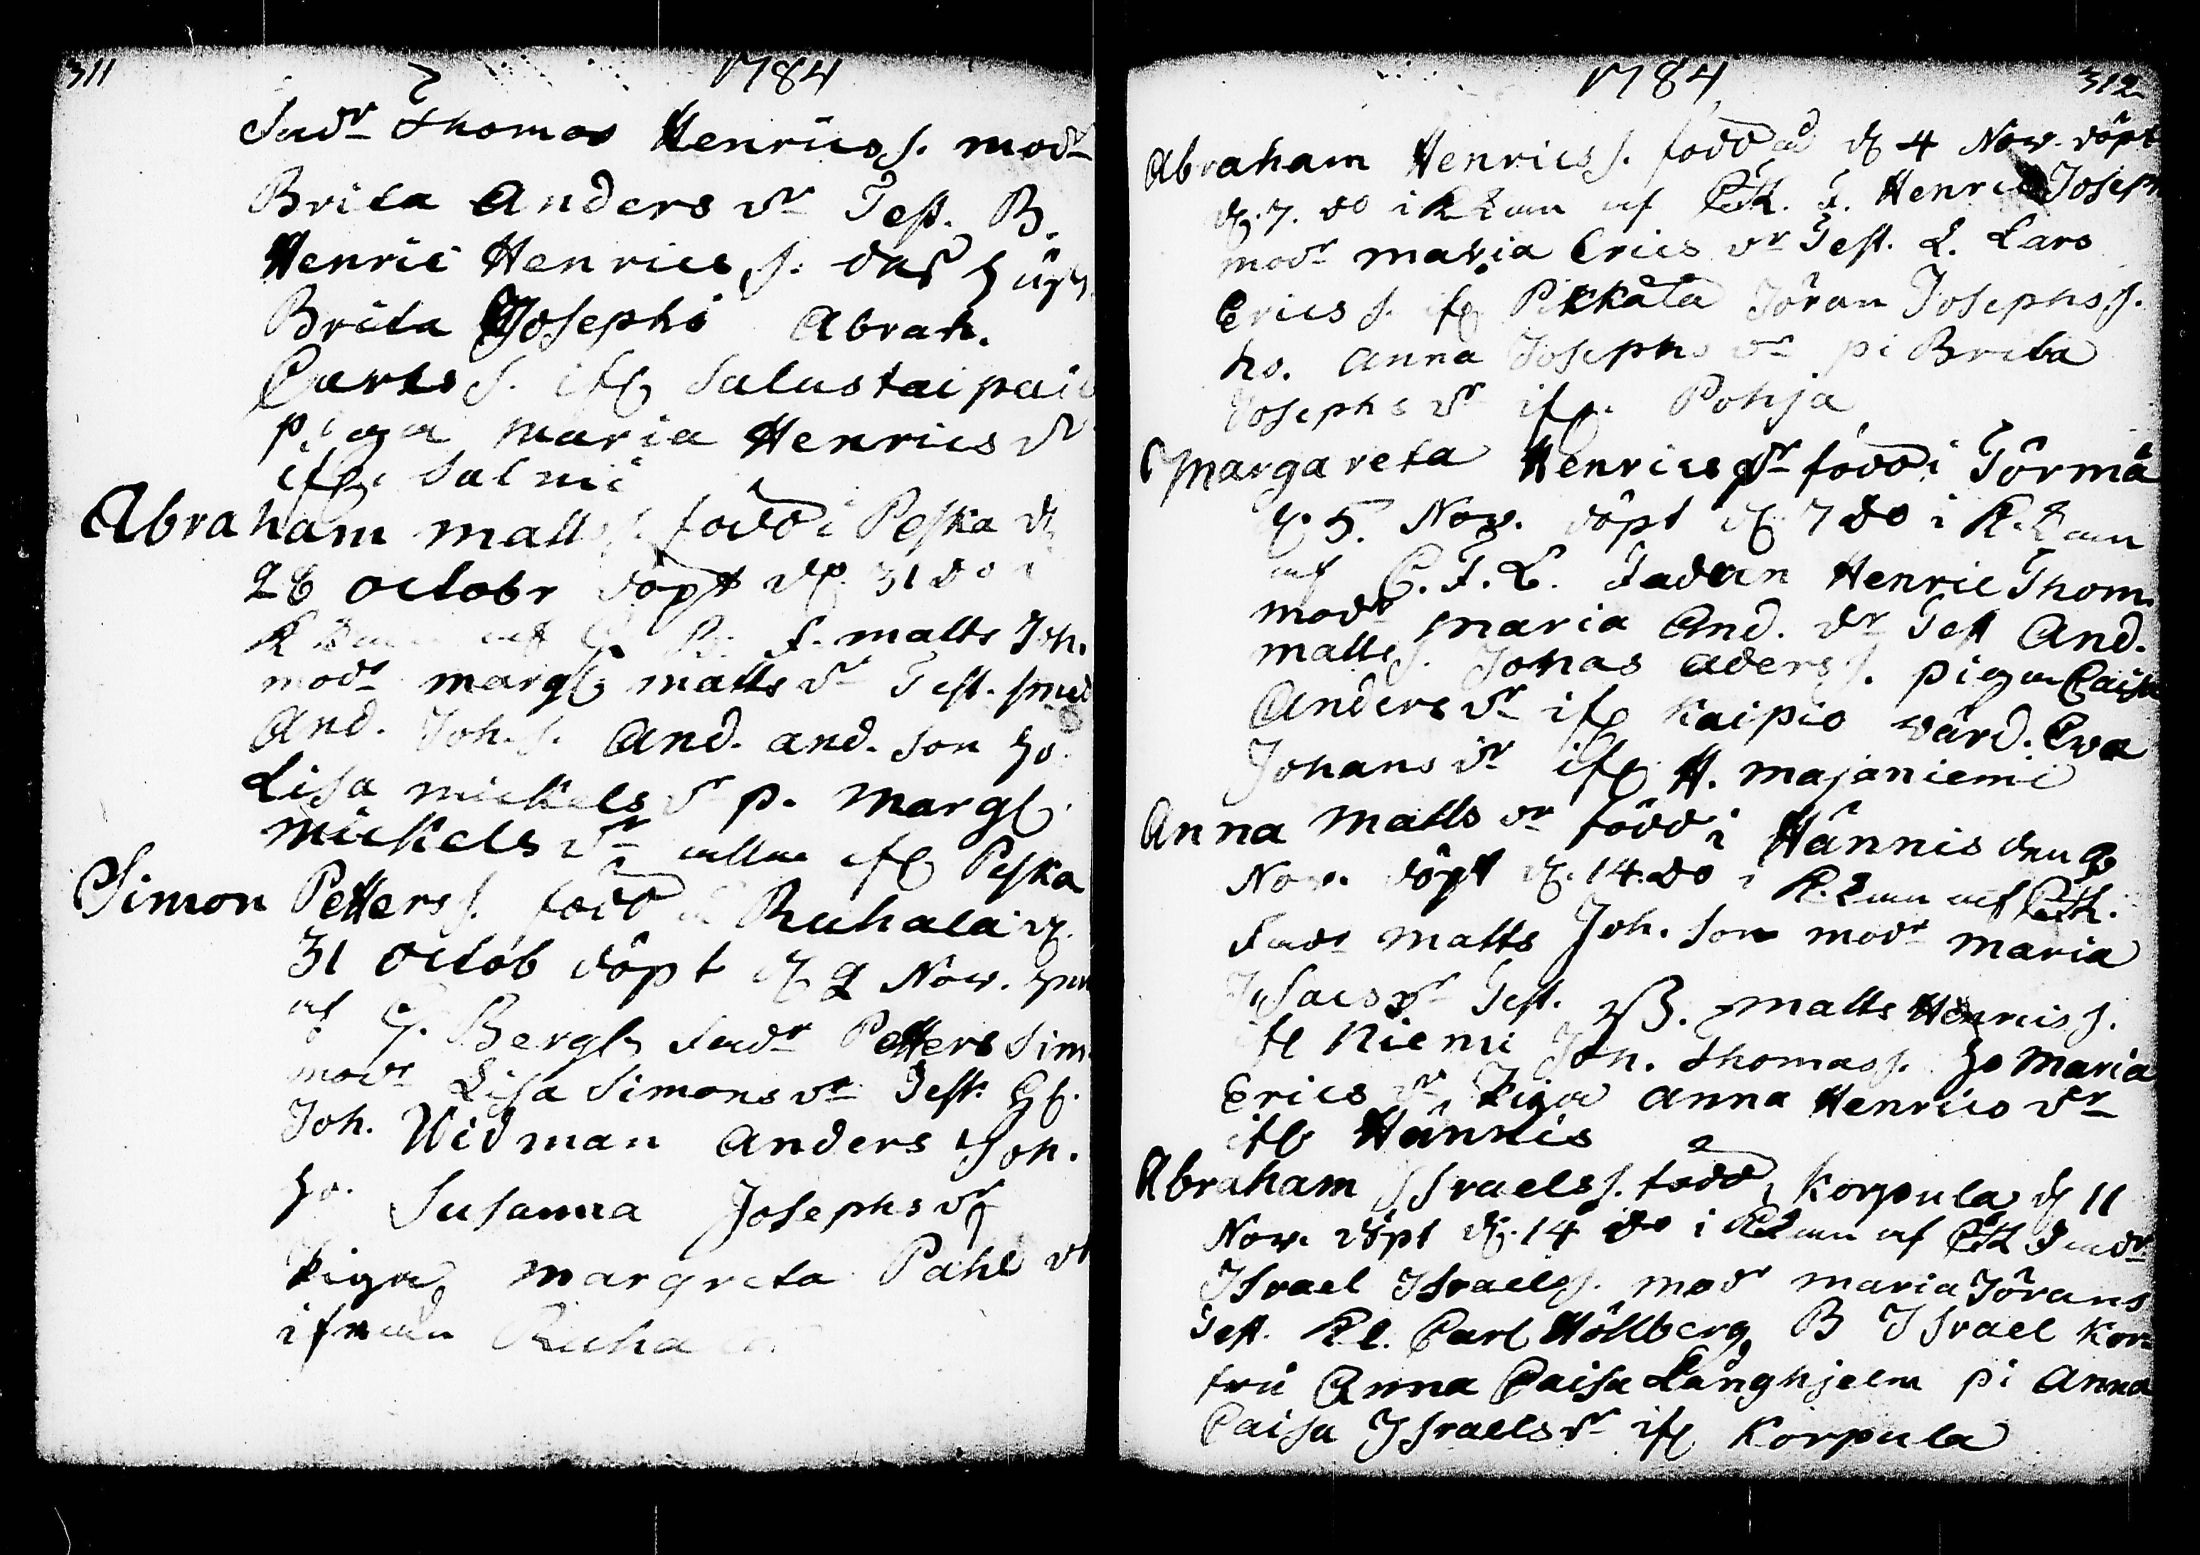 311 1784
Fadr Thomas Henrics s. modr
Brita Anders dr Test. B.
Henric Henrics s. dess hust
Brita Josephs Abrah.
Carls s. ifr. Salustaipa
piga Maria Henrics dr
ifr. Salmi
Abraham Matts s. född i Peska d.
28 octobr döpt d. 31 do i
K. F. Matts Joh.
modr Margt Matts dr Test. smed
And. Joh. s. And. And. son ho
Lisa Mickels dr p. Margt
Mickels dr alla ifr Peska
Simon Petters s. född i Ruhala d.
31 octob döpt d. 2 Nov.
af G. Bergh Fadr Petters Sim
modr Lisa Simons dr Test.
Joh. Widman Anders Joh.
ho. Susanna Josephs dr
Piga Margreta Påhl dr
ifrån Ruha
1784 312
Abraham Henrics s. född d 4 Nov. döpt
d. 7. do i af F. Henric Joseph
modr Maria Erics dr Test. L. Lars
Erics s. ifr Pikkala Jöran Josephs s.
ho. Anna Josephs dr pi Brita
Josephs dr ifr. Pohja
Margareta Henrics dr född i Törmä
d. 5. Nov. döpt d. 7 do i K.
af C. F. L. Fadren Henric Thom.
modr Maria And. dr Test And.
Matts s. Johas Aders s. piga Caisa
Anders dr ifr Kaipio värd. Eva
Johans dr ifr. H. Majaniemi
Anna Matts dr född i Hannis den 9
Nov. döpt d. 14. do i K. af
Fadr Matts Joh. son modr Maria
Isacs dr Test. B. Matts Henrics s.
ifr Niemi Joh. Thomas s. ho Maria
Erics dr Piga Anna Henrics dr
ifr Hannis
Abraham Israels s. född i Korpula d 11
Nov. döpt d. 14 do i af Fadr
Israel Israels s. modr Maria Jörans
Test. Kl. Carl Höllberg B Israel Kor-
fru Anna Caisa Långhjelm pi Anna
Caisa Israels dr ifr Korpula